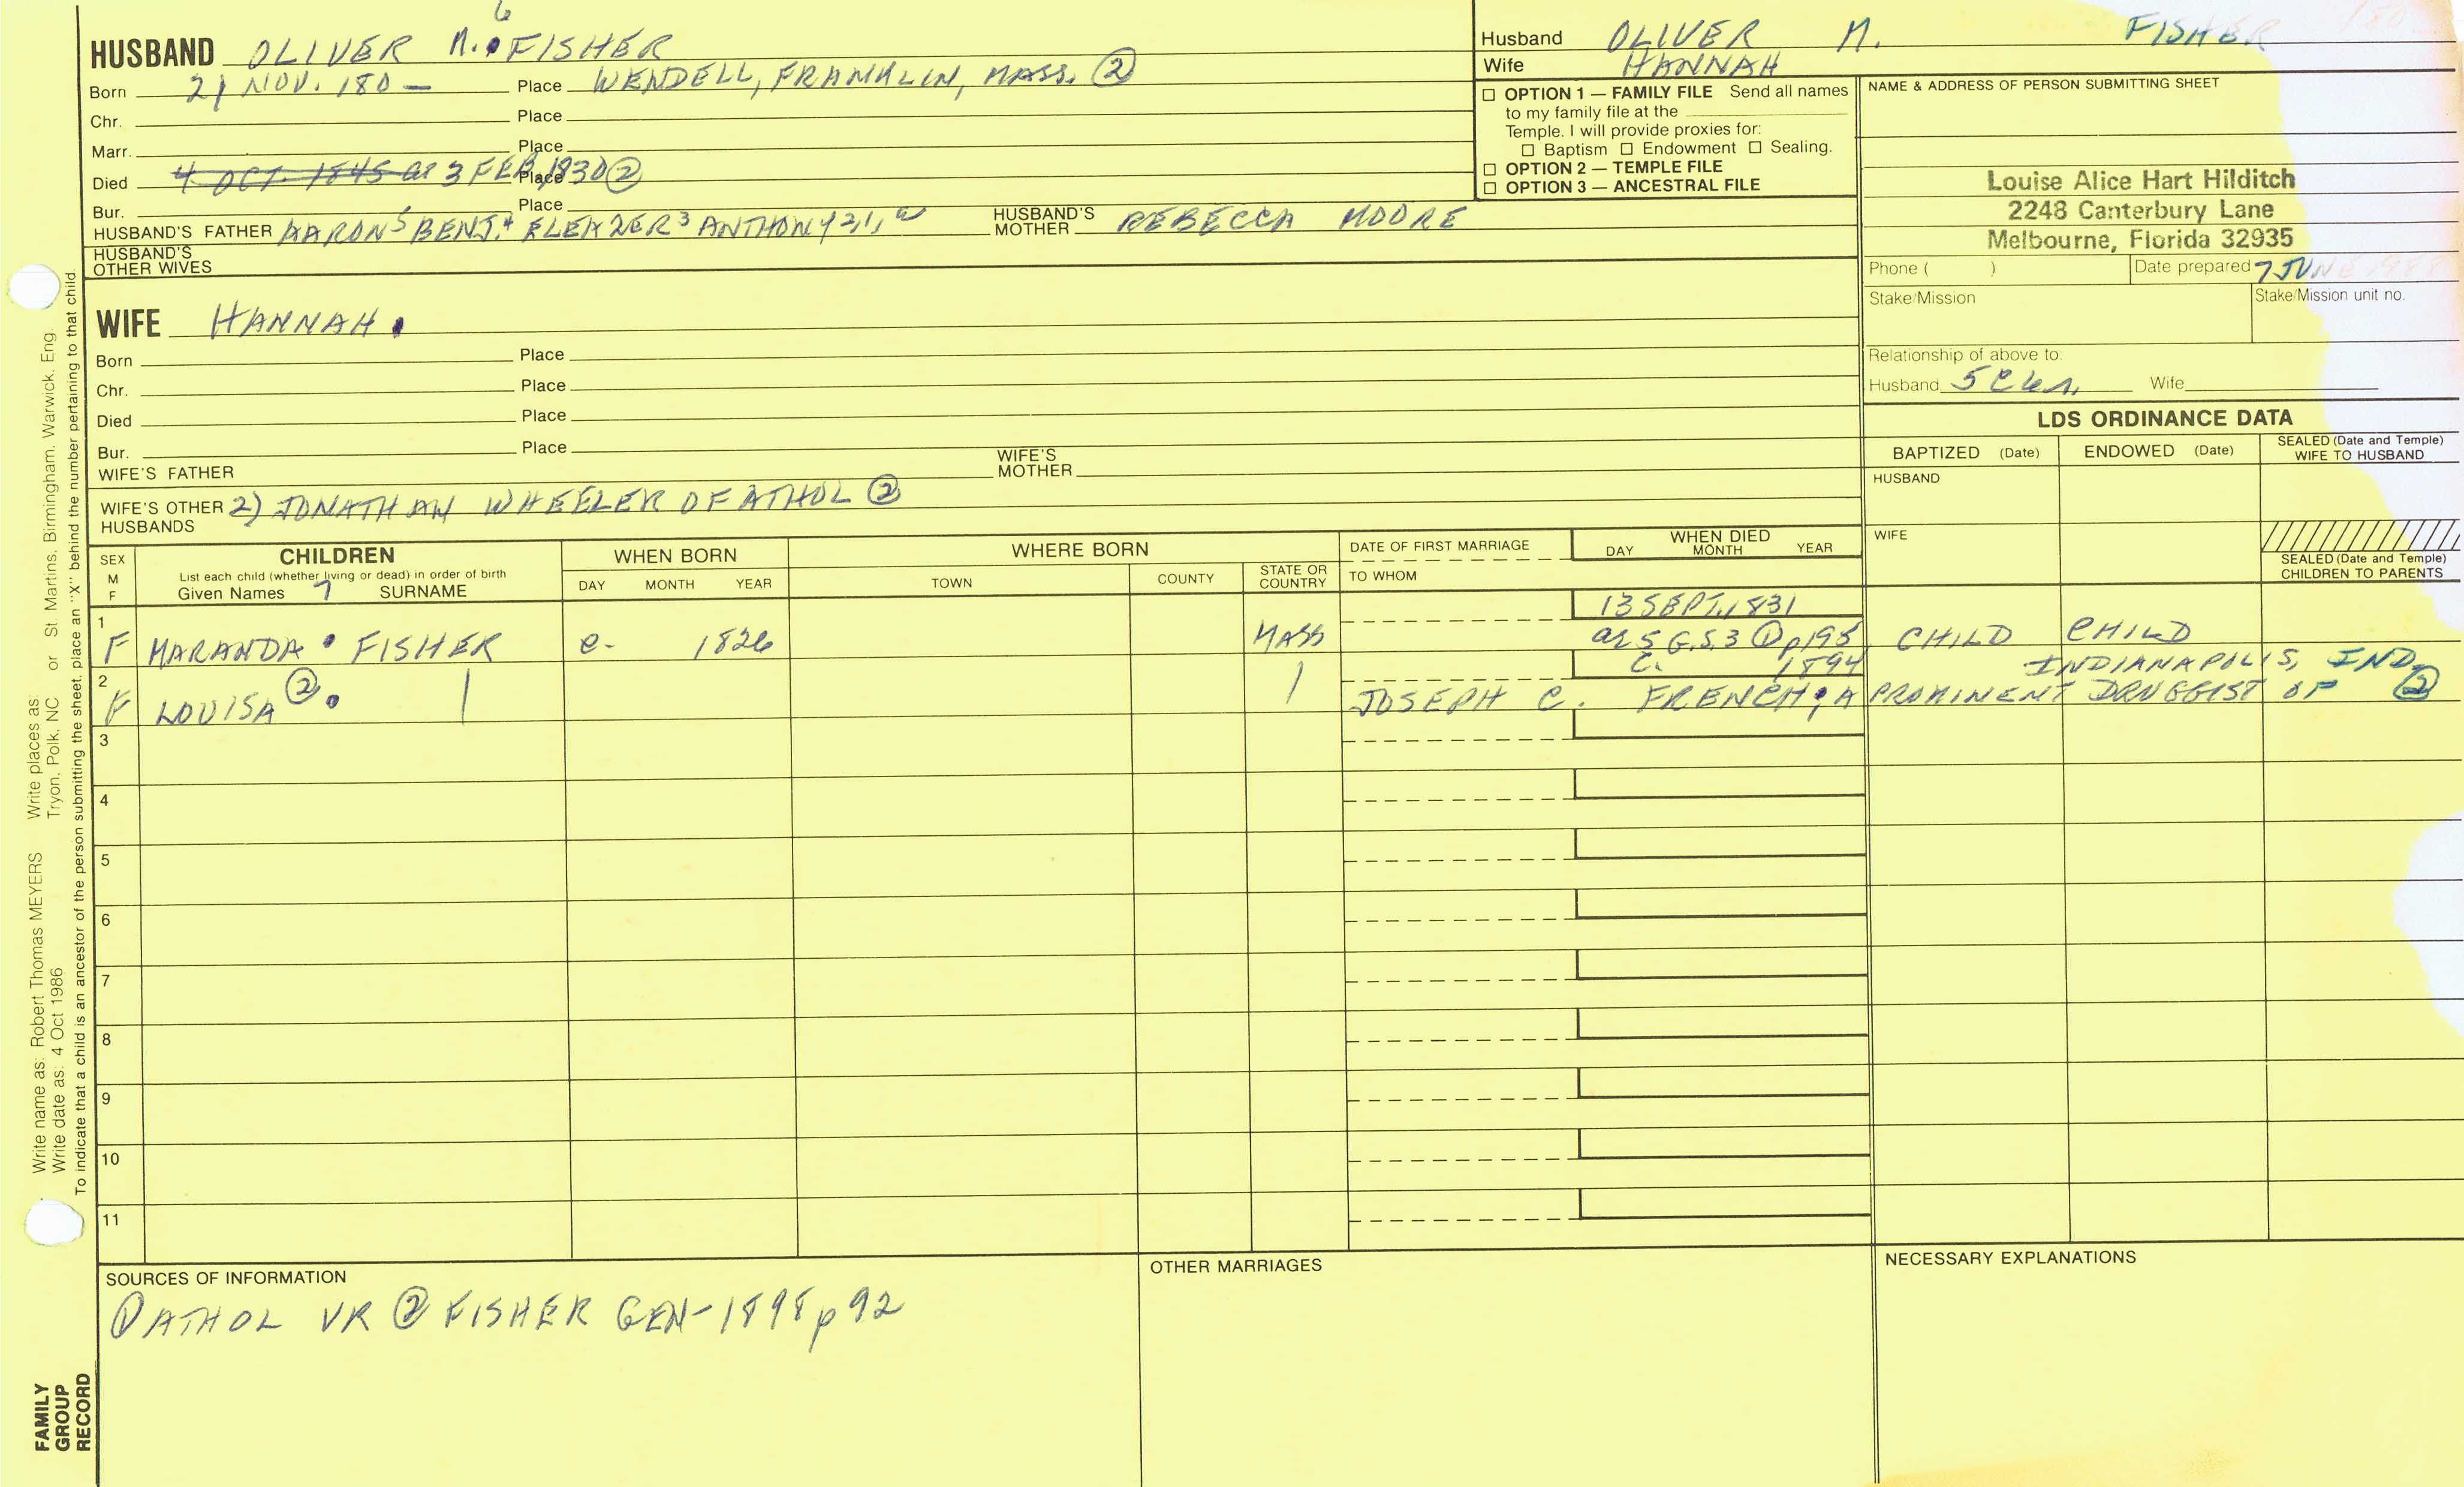 6
HUSBAND OLIVER M. FISHER
Born 21 NOV. 180— Place WENDELL, FRANKLIN, MASS. ②
Chr. Place
Marr. Place
Died 4 OCT. 1845 as 3 FEB. 1830 ② Place
Bur. Place
HUSBAND'S FATHER AARON5 BENJ.4 ELEAZER3 ANTHONY2,1, HUSBAND'S MOTHER REBECCA MOORE
HUSBAND'S OTHER WIVES
WIFE HANNAH.
Born Place
Chr. Place
Died Place
Bur. Place
WIFE'S FATHER WIFE'S MOTHER
WIFE'S OTHER HUSBANDS 2) JONATHAN WHEELER OF ATHOL ②
Husband OLIVER M. FISHER
Wife HANNAH
☐ OPTION 1 — FAMILY FILE Send all names
to my family file at the
Temple. I will provide proxies for:
☐ Baptism ☐ Endowment ☐ Sealing.
☐ OPTION 2 — TEMPLE FILE
☐ OPTION 3 — ANCESTRAL FILE
NAME & ADDRESS OF PERSON SUBMITTING SHEET
Louise Alice Hart Hilditch
2248 Canterbury Lane
Melbourne, Florida 32935
Phone ( ) Date prepared 7 JUNE
Stake/Mission Stake/Mission unit no.
Relationship of above to:
Husband 5 C Wife
LDS ORDINANCE DATA
BAPTIZED (Date) ENDOWED (Date) SEALED (Date and Temple) WIFE TO HUSBAND
HUSBAND
WIFE
SEALED (Date and Temple) CHILDREN TO PARENTS
SEX M F
CHILDREN
List each child (whether living or dead) in order of birth
Given Names 7 SURNAME
WHEN BORN
DAY MONTH YEAR
WHERE BORN
TOWN COUNTY STATE OR COUNTRY
DATE OF FIRST MARRIAGE
TO WHOM
WHEN DIED
DAY MONTH YEAR
1 13 SEPT. 1831
F MARANDA • FISHER c- 1826 MASS as 5 G.S.3 ① p195 CHILD CHILD
2 c. 1894 INDIANAPOLIS, IND.
F LOUISA ②. | | JOSEPH C. FRENCH; A PROMINENT DRUGGIST OF ②
3
4
5
6
7
8
9
10
11
SOURCES OF INFORMATION
① ATHOL VR ② FISHER GEN-1898 p 92
OTHER MARRIAGES
NECESSARY EXPLANATIONS
Write name as: Robert Thomas MEYERS Write places as:
Write date as: 4 Oct 1986 Tryon, Polk, NC or St. Martins, Birmingham, Warwick, Eng.
To indicate that a child is an ancestor of the person submitting the sheet, place an "X" behind the number pertaining to that child.
FAMILY
GROUP
RECORD